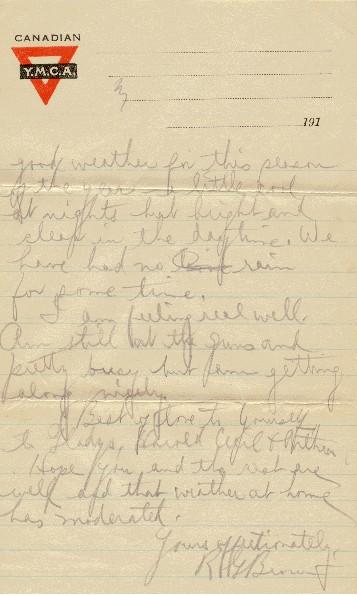 CANADIAN
Y.M.C.A.
191
good weather for this season
of the year a little cool
at nights but bright and
clear in the daytime. We
have had no rain
for some time.
I am feeling real well.
Am still at the guns and
pretty busy but am getting
along nicely.
Best of love to Yourself
to Gladys, Harold Cecil & Arthur.
Hope you, and the rest are
well and that weather at home
has moderated.
Yours affectionately,
Brown